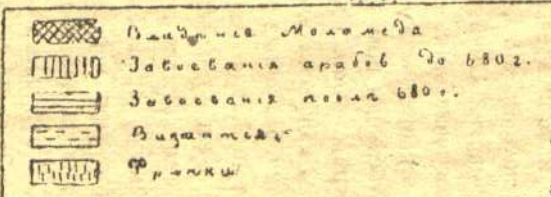 Владения Мохамеда
Завоевания арабов до 680 г.
Завоевания после 680 г.
Византия
Франки